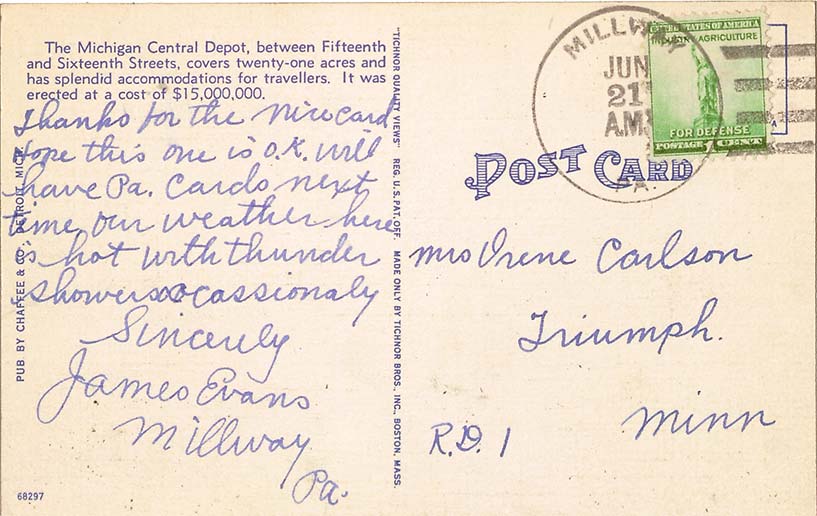 The Michigan Central Depot, between Fifteenth
and Sixteenth Streets, covers twenty-one acres and
has splendid accommodations for travellers. It was
erected at a cost of $15,000,000.
Thanks for the Nice card
Hope this one is O.K. will
have Pa. Cards next
time, our weather here
is hot with thunder
showers ocassionaly
Sincerely
James Evans
Millway
Pa.
68297
PUB. BY CHAFFEE & CO., DETROIT, MICH.
"TICHNOR QUALITY VIEWS" REG. U.S. PAT. OFF. MADE ONLY BY TICHNOR BROS., INC., BOSTON, MASS.
POST CARD
MILLWAY
JUN
21
A.M.
PA.
UNITED STATES OF AMERICA
INDUSTRY AGRICULTURE
FOR DEFENSE
POSTAGE 1 CENT
Mrs Irene Carlson
Triumph.
Minn
R.D. 1